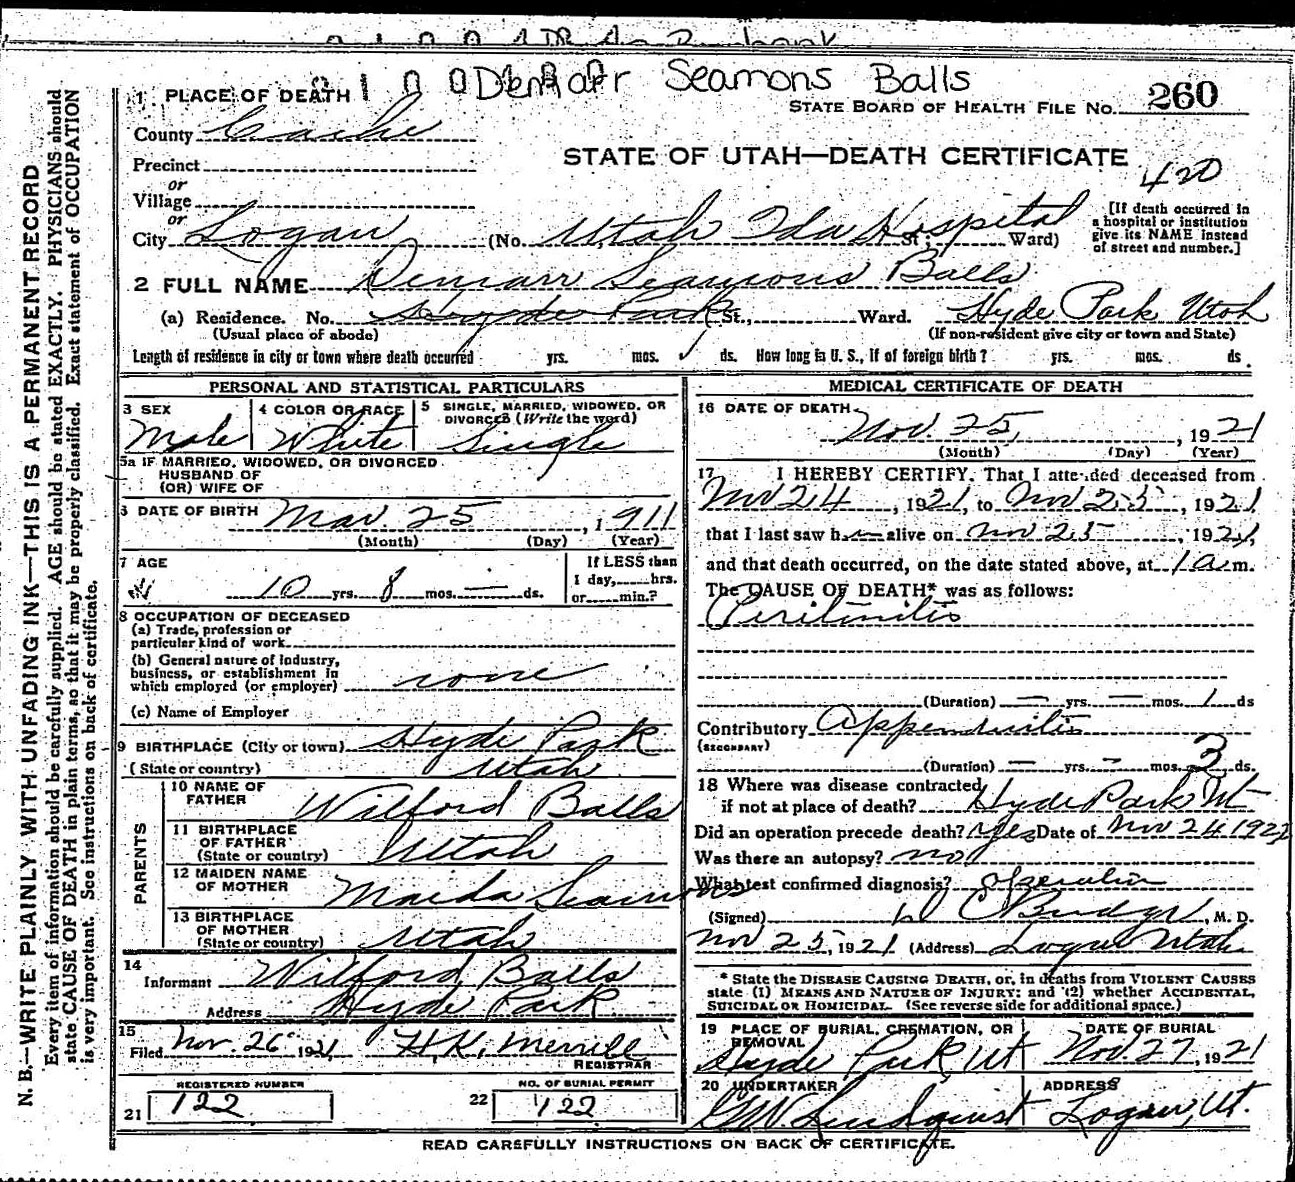 Seamons Balls
STATE BOARD OF HEALTH FILE NO. 260
1 PLACE OF DEATH
County Cache
STATE OF UTAH—DEATH CERTIFICATE
420
Precinct
or
Village
or
City Logan (No. Utah Ida Hospital St., Ward)
[If death occurred in
a hospital or institution
give its NAME instead
of street and number.]
2 FULL NAME Demarr Seamons Balls
(a) Residence. No. Hyde Park St., Ward. Hyde Park Utah
(Usual place of abode) (If non-resident give city or town and State)
Length of residence in city or town where death occurred yrs. mos. ds. How long in U. S., if of foreign birth? yrs. mos. ds.
PERSONAL AND STATISTICAL PARTICULARS
3 SEX Male
4 COLOR OR RACE White
5 SINGLE, MARRIED, WIDOWED, OR
DIVORCED (Write the word)
Single
5a IF MARRIED, WIDOWED, OR DIVORCED
HUSBAND OF
(OR) WIFE OF
6 DATE OF BIRTH Mar. 25, 1911
(Month) (Day) (Year)
7 AGE
10 yrs. 8 mos. — ds.
If LESS than
1 day, hrs.
or min.?
8 OCCUPATION OF DECEASED
(a) Trade, profession or
particular kind of work
(b) General nature of industry,
business, or establishment in
which employed (or employer) none
(c) Name of Employer
9 BIRTHPLACE (City or town) Hyde Park
(State or country) Utah
PARENTS
10 NAME OF
FATHER Wilford Balls
11 BIRTHPLACE
OF FATHER
(State or country) Utah
12 MAIDEN NAME
OF MOTHER Maida Seamons
13 BIRTHPLACE
OF MOTHER
(State or country) Utah
14
Informant Wilford Balls
Address Hyde Park
15
Filed Nov. 26 1921 H.K. Merrill
REGISTRAR
REGISTERED NUMBER
21 122
NO. OF BURIAL PERMIT
22 122
MEDICAL CERTIFICATE OF DEATH
16 DATE OF DEATH
Nov. 25, 1921
(Month) (Day) (Year)
17 I HEREBY CERTIFY. That I attended deceased from
Nov 24, 1921, to Nov 25, 1921
that I last saw h— alive on Nov 25, 1921,
and that death occurred, on the date stated above, at 1 a m.
The CAUSE OF DEATH* was as follows:
Peritonitis
(Duration) — yrs. — mos. 1 ds
Contributory Appendicitis
(SECONDARY)
(Duration) — yrs. — mos. 3 ds.
18 Where was disease contracted
if not at place of death? Hyde Park Ut
Did an operation precede death? yes Date of Nov 24 192
Was there an autopsy? no
What test confirmed diagnosis? operation
(Signed) Budge, M. D.
Nov 25, 1921 (Address) Logan Utah
* State the DISEASE CAUSING DEATH, or, in deaths from VIOLENT CAUSES
state (1) MEANS AND NATURE OF INJURY; and (2) whether ACCIDENTAL,
SUICIDAL OR HOMICIDAL. (See reverse side for additional space.)
19 PLACE OF BURIAL, CREMATION, OR
REMOVAL
Hyde Park Ut
DATE OF BURIAL
Nov. 27, 1921
20 UNDERTAKER
G.W. Lindquist
ADDRESS
Logan, Ut.
READ CAREFULLY INSTRUCTIONS ON BACK OF CERTIFICATE.
N. B.—WRITE PLAINLY WITH UNFADING INK—THIS IS A PERMANENT RECORD
Every item of information should be carefully supplied. AGE should be stated EXACTLY. PHYSICIANS should
state CAUSE OF DEATH in plain terms, so that it may be properly classified. Exact statement of OCCUPATION
is very important. See instructions on back of certificate.